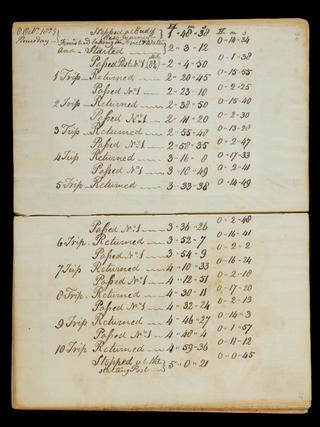 8 Octr. 1829 Stopped at End of H m s H m s
Thursday 1-48-38
Finished taking in Coke & Water 0-14-34
and Started 2-3-12
0-1-38
Passed Post No. 1 2-4-50
0-15-55
1 Trip Returned 2-20-45
0-2-25
Passed No. 1 2-23-10
0-15-40
2 Trip Returned 2-38-50
0-2-30
Passed No. 1 2-41-20
0-13-28
3 Trip Returned 2-55-48
0-2-47
Passed No. 1 2-58-35
0-17-33
4 Trip Returned 3-16-8
0-2-41
Passed No. 1 3-18-49
0-14-49
5 Trip Returned 3-33-38
0-2-48
Passed No. 1 3-36-26
0-16-41
6 Trip Returned 3-52-7
0-2-2
Passed No. 1 3-54-9
0-16-24
7 Trip Returned 4-10-33
0-2-18
Passed No. 1 4-12-51
0-17-20
8 Trip Returned 4-30-11
0-2-13
Passed No. 1 4-32-24
0-14-3
9 Trip Returned 4-46-27
0-1-57
Passed No. 1 4-48-4
0-11-12
10 Trip Returned 4-59-36
0-0-45
Stopped at the
starting Post 5-0-21